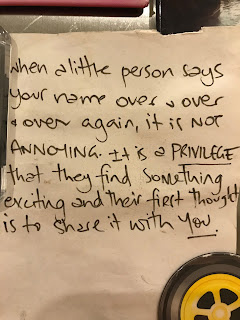 when a little person says
your name over & over
& over again, it is NOT
ANNOYING. It is a PRIVILEGE
that they find something
exciting and their first thought
is to share it with you.